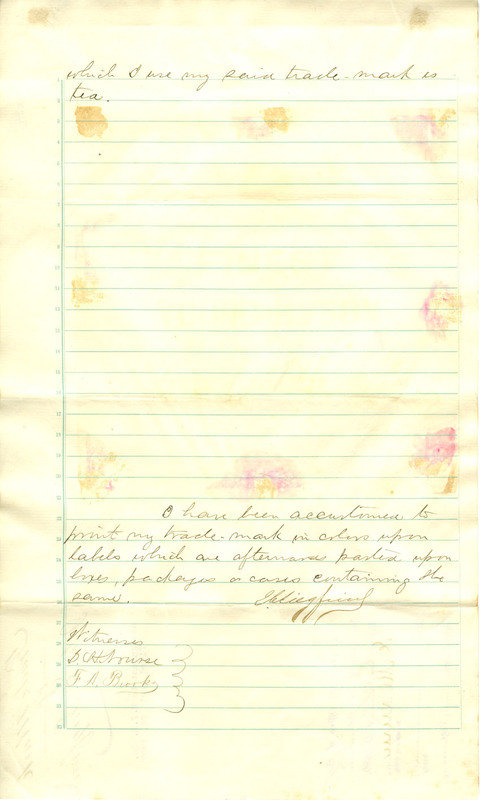 which I use my said trade-mark is
tea.
I have been accustomed to
print my trade-mark in colors upon
labels which are afterwards pasted upon
boxes, packages or cases containing the
same.
Witnesses
D. H. Nourse
F. A. Brooks